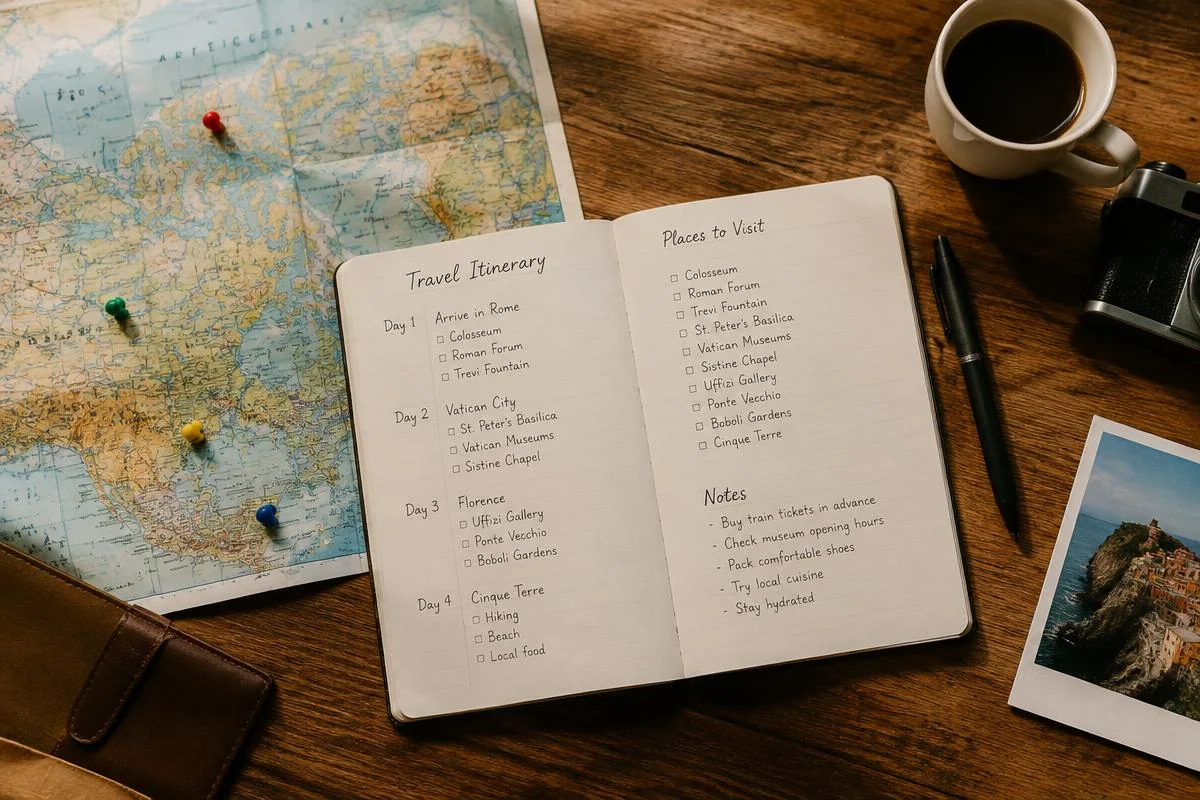 Travel Itinerary
Day 1
Arrive in Rome
Colosseum
Roman Forum
Trevi Fountain
Day 2
Vatican City
St. Peter's Basilica
Vatican Museums
Sistine Chapel
Day 3
Florence
Uffizi Gallery
Ponte Vecchio
Boboli Gardens
Day 4
Cinque Terre
Hiking
Beach
Local food
Places to Visit
Colosseum
Roman Forum
Trevi Fountain
St. Peter's Basilica
Vatican Museums
Sistine Chapel
Uffizi Gallery
Ponte Vecchio
Boboli Gardens
Cinque Terre
Notes
- Buy train tickets in advance
- Check museum opening hours
- Pack comfortable shoes
- Try local cuisine
- Stay hydrated